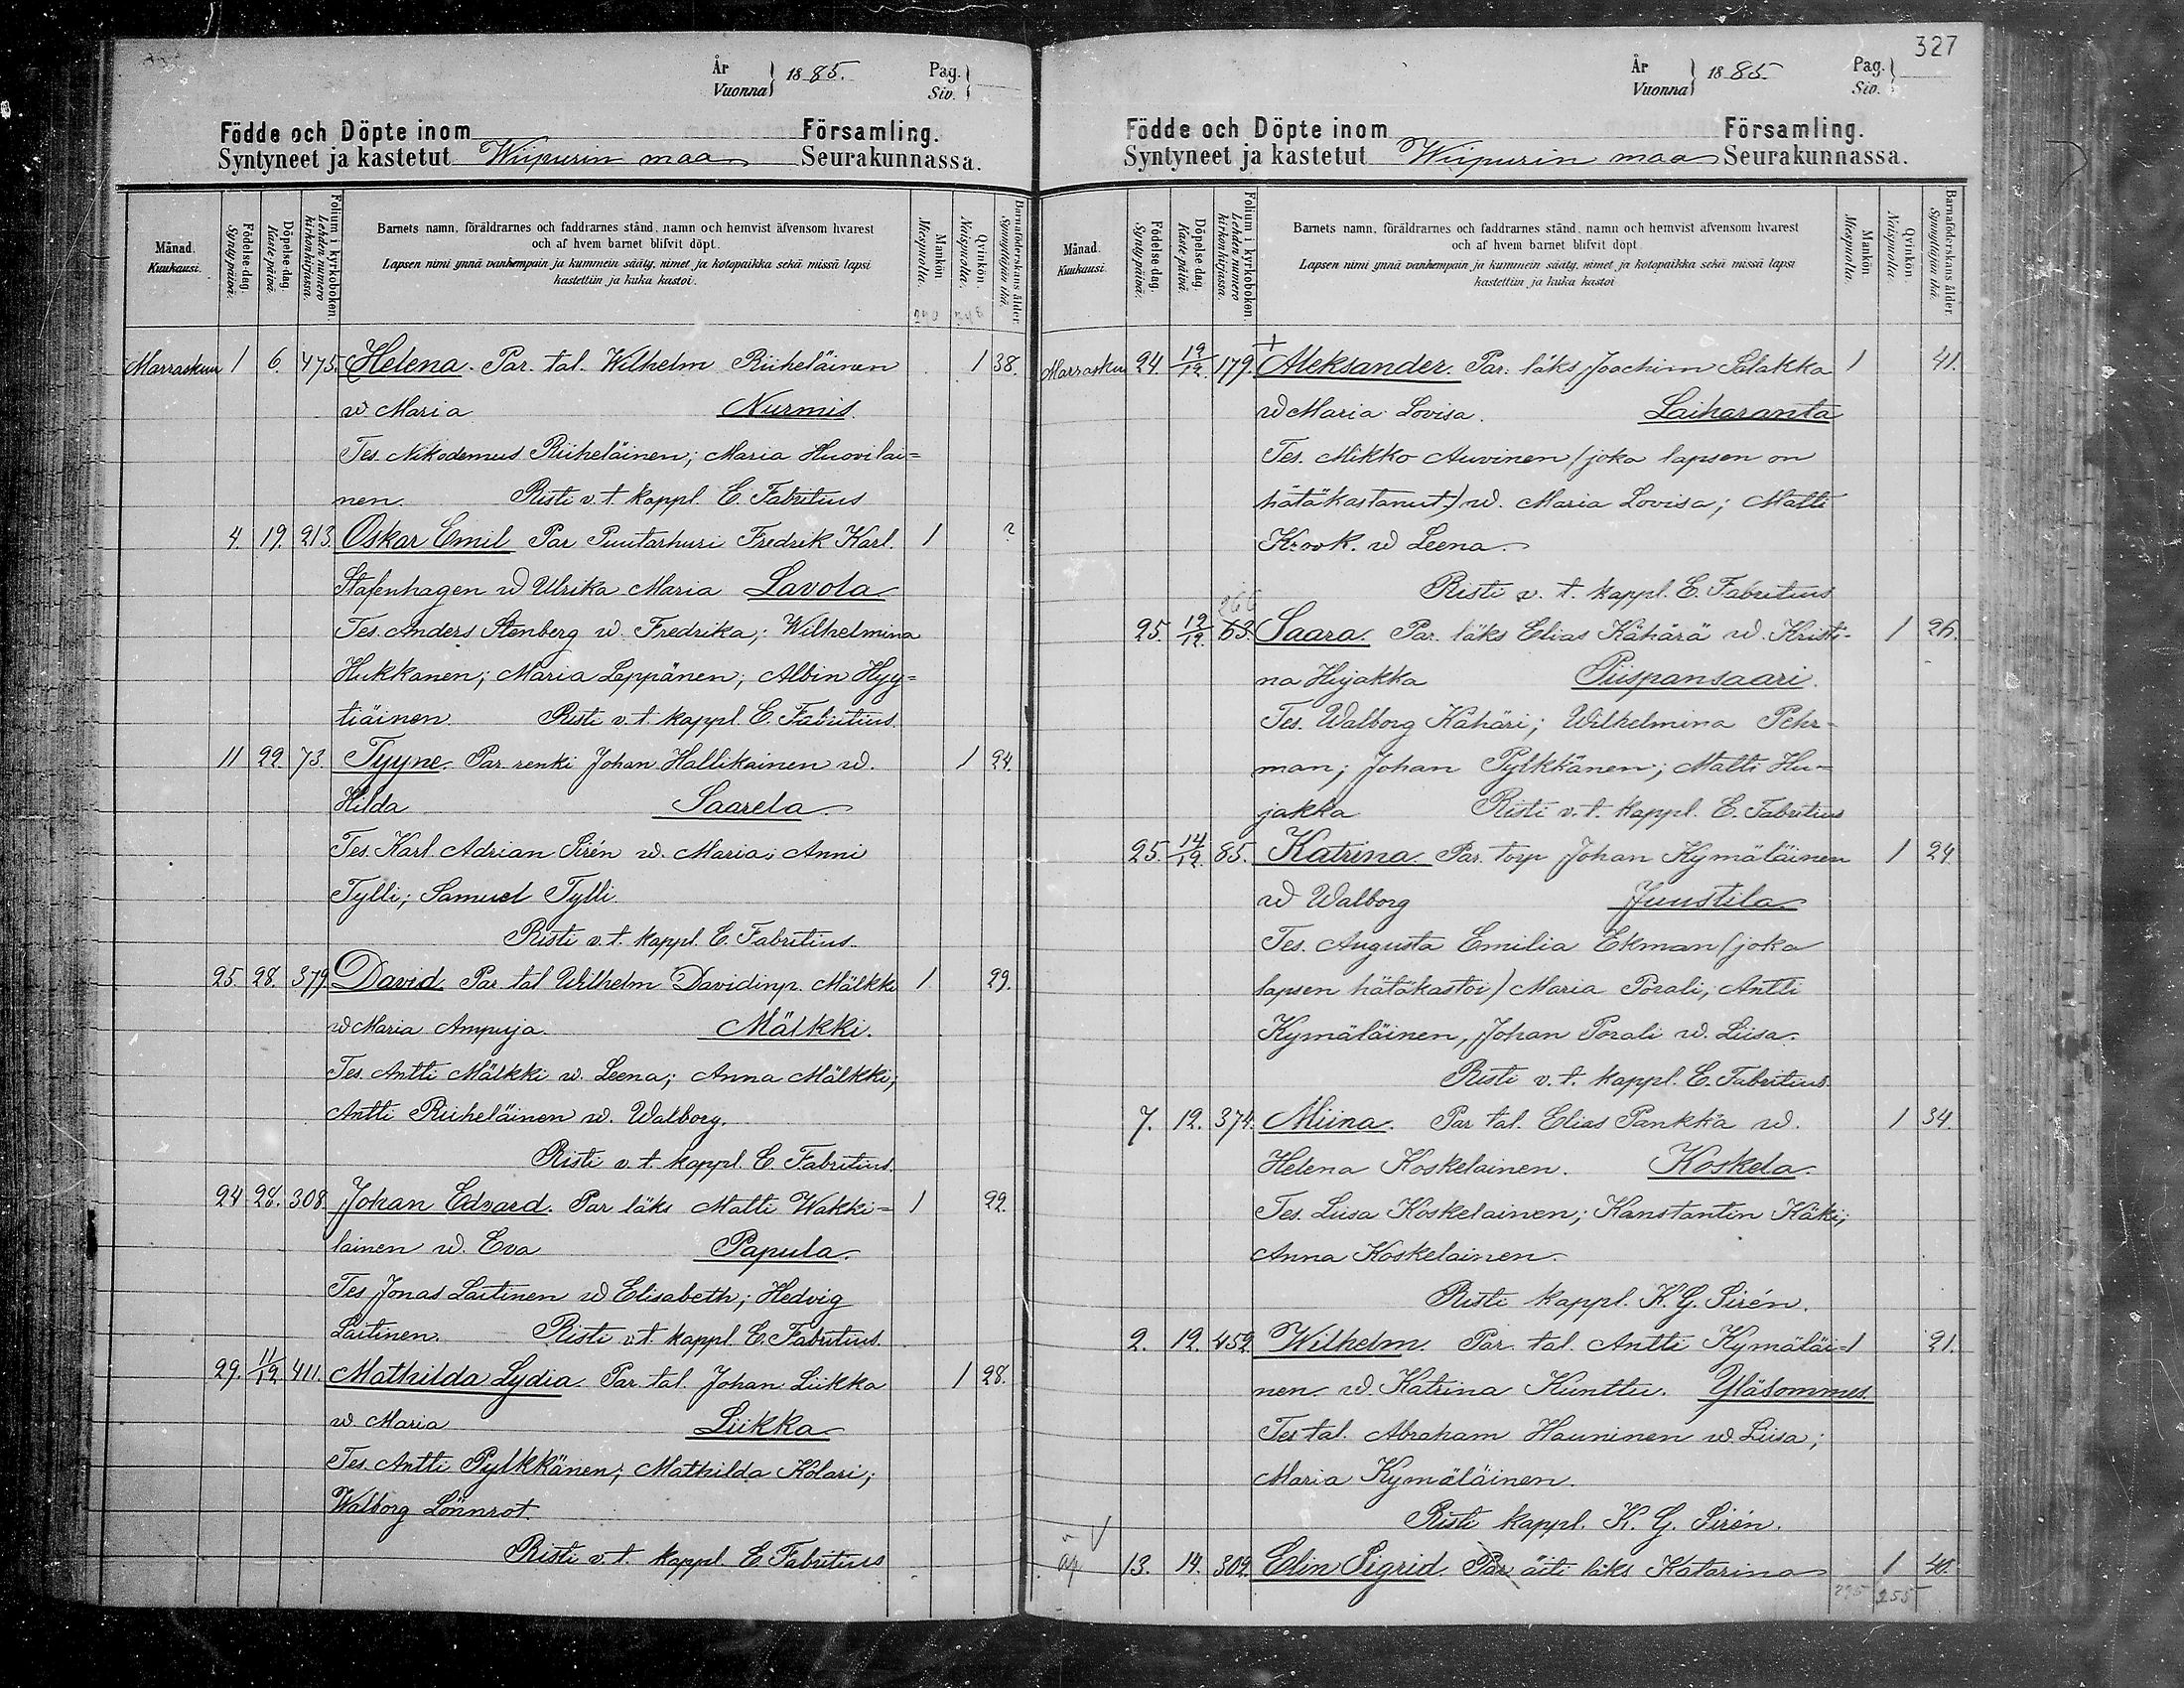 År
Vuonna } 1885. Pag.
Siv. }
Födde och Döpte inom Församling.
Syntyneet ja kastetut Wiipurin maa Seurakunnassa.
Månad.
Kuukausi.
Födelse-dag.
Synty päivä.
Döpelse-dag.
Kaste päivä.
Folium i kyrkoboken.
Lehden numero kirkonkirjassa.
Barnets namn, föräldrarnes och faddrarnes stånd, namn och hemvist äfvensom hvarest
och af hvem barnet blifvit döpt.
Lapsen nimi ynnä vanhempain ja kummein sääty, nimet ja kotopaikka sekä missä lapsi
kastettiin ja kuka kastoi.
Mankön.
Miespuolta.
Qvinkön.
Naispuolta.
Barnaföderskans ålder.
Synnyttäjän ikä.
Marraskuu 1 6. 475. Helena. Par. tal. Wilhelm Riiheläinen 1 38.
w. Maria Nurmis.
Tes. Nikodemus Riiheläinen; Maria Huovilai=
nen. Risti v. t. kappl. E. Fabritius
4. 19. 213. Oskar Emil Par Puutarhuri Fredrik Karl. 1 ?
Stafenhagen w Ulrika Maria Lavola
Tes. Anders Stenberg w. Fredrika; Wilhelmina
Hukkanen; Maria Leppänen; Albin Hyy=
tiäinen. Risti v. t. kappl. E. Fabritius.
11 22. 73. Tyyne. Par renki Johan Hallikainen w. 1 24.
Hilda Saarela.
Tes. Karl Adrian Sirén w. Maria; Anni
Tylli; Samuel Tylli.
Risti v. t. kappl. E. Fabritius.
25. 28. 379. David. Par tal Wilhelm Davidinp. Mälkki 1 29.
w Maria Ampuja. Mälkki.
Tes. Antti Mälkki w. Leena; Anna Mälkki;
Antti Riiheläinen w. Walborg.
Risti v. t. kappl. E. Fabritius.
24 28. 308. Johan Edvard. Par läks Matti Wakki= 1 22.
lainen w. Eva Papula.
Tes Jonas Laitinen w Elisabeth; Hedvig
Laitinen. Risti v. t. kappl. E. Fabritius.
29. 11/12 411. Mathilda Lydia. Par. tal. Johan Liikka 1 28.
w. Maria Liikka
Tes. Antti Pylkkänen; Mathilda Kolari;
Walborg Lönnrot.
Risti v. t. kappl. E. Fabritius
327
År
Vuonna } 1885. Pag.
Siv. }
Födde och Döpte inom Församling.
Syntyneet ja kastetut Wiipurin maa Seurakunnassa.
Månad.
Kuukausi.
Födelse-dag.
Synty päivä.
Döpelse-dag.
Kaste päivä.
Folium i kyrkoboken.
Lehden numero kirkonkirjassa.
Barnets namn, föräldrarnes och faddrarnes stånd, namn och hemvist äfvensom hvarest
och af hvem barnet blifvit döpt.
Lapsen nimi ynnä vanhempain ja kummein sääty, nimet ja kotopaikka sekä missä lapsi
kastettiin ja kuka kastoi
Mankön.
Miespuolta.
Qvinkön.
Naispuolta.
Barnaföderskans ålder.
Synnyttäjän ikä.
Marraskuu 24. 12/12. 179. † Aleksander. Par. läks Joachim Salakka 1 41.
w Maria Lovisa. Laiharanta
Tes. Mikko Auvinen (joka lapsen on
hätäkastanut) w. Maria Lovisa; Matti
Krook. w Leena.
Risti v. t. kappl. E. Fabritius
266
25. 12/12. 63. Saara. Par. läks Elias Kähärä w. Kristi- 1 26.
na Hujakka Piispansaari.
Tes. Walborg Kähäri; Wilhelmina Pehr-
man; Johan Pylkkänen; Matti Hu=
jakka Risti v. t. kappl. E. Fabritius
25. 14/12. 85. Katrina Par. torp Johan Kymäläinen 1 24.
w Walborg Juustila
Tes. Augusta Emilia Ekman (joka
lapsen hätäkastoi) Maria Porali, Antti
Kymäläinen, Johan Porali w. Liisa.
Risti v. t. kappl. E. Fabritius.
7. 12. 374. Miina. Par tal. Elias Pankka w. 1 34.
Helena Koskelainen. Koskela.
Tes. Liisa Koskelainen; Kanstantin Käki;
Anna Koskelainen.
Risti kappl. K. G. Sirén.
2. 12. 452. Wilhelm. Par. tal. Antti Kymäläi= 1 21.
nen w. Katrina Kunttu. Yläsommes.
Tes tal. Abraham Hauninen w. Liisa;
Maria Kymäläinen.
Risti kappl. K. G. Sirén.
äp 13. 14. 302. Elin Sigrid. Par äiti läks Katarina 1 40.
255